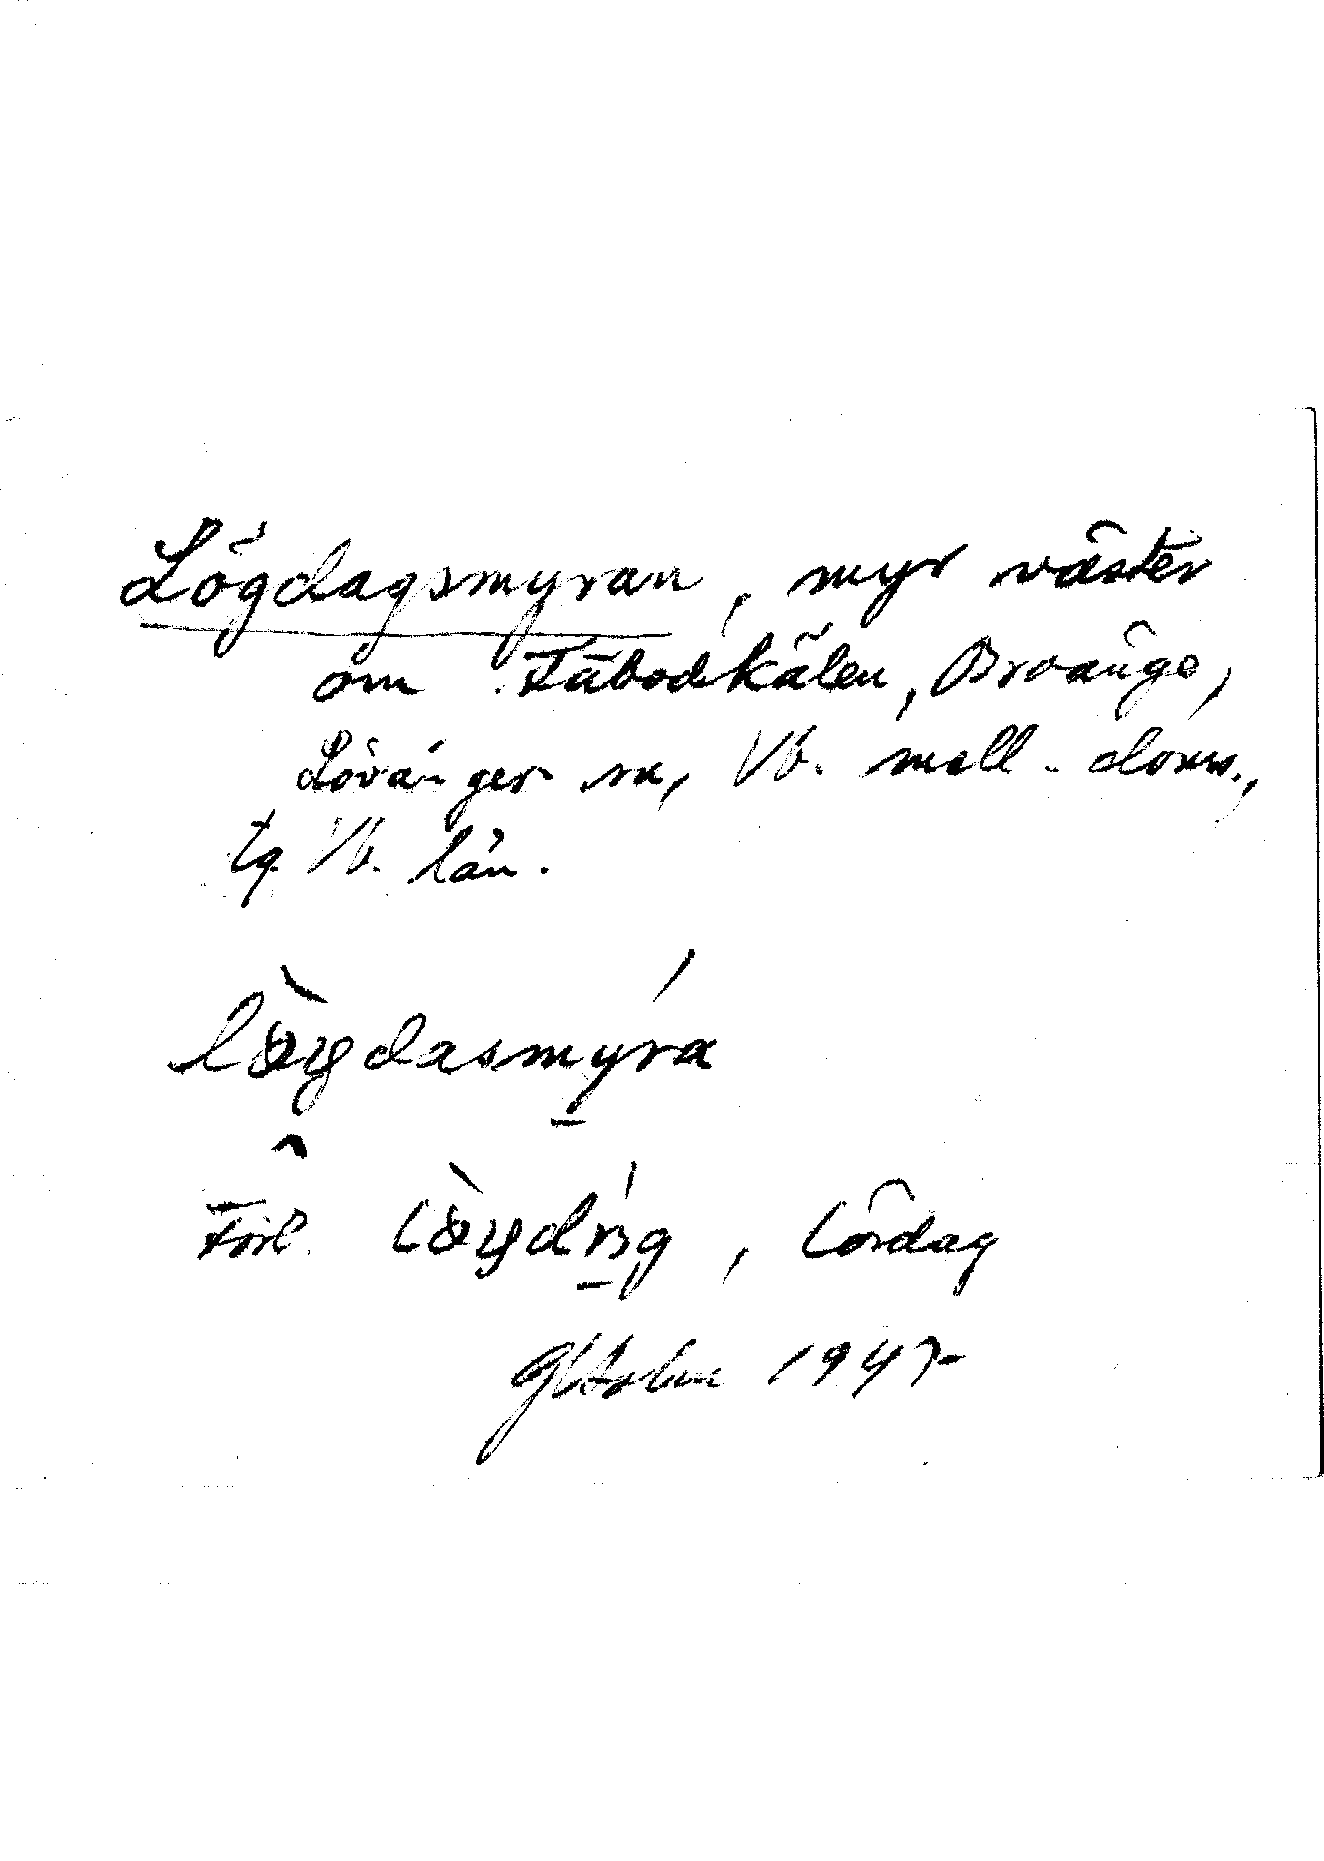 Lögdagsmyran, myr väster
om Fäbodkälen, Broänge,
Lövånger sn, Vb. mell. doms.,
tg Vb. län.
lägdasmýra
Förl. lägdıŋ, Lördag
1947